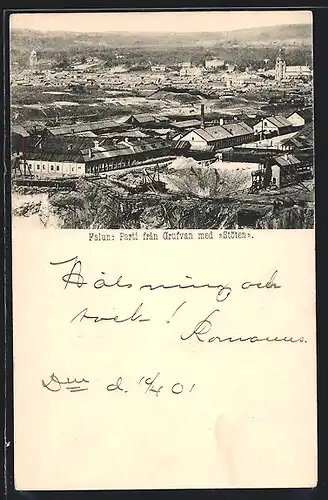 Falun: Parti från Grufvan med »Stöten».
Hälsning och
tack!
Romanus.
D. d. 19/4 01